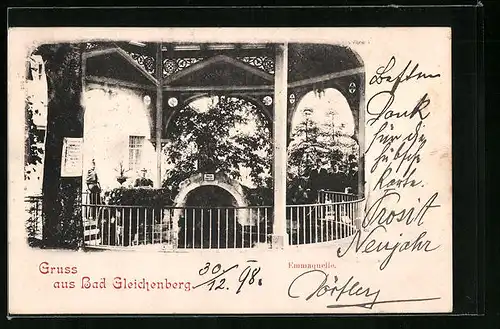 Besten
Dank
für die
hübsche
Karte.
Prosit
Neujahr
Gruss
aus Bad Gleichenberg.
30/12. 98.
Emmaquelle.
Dörfler